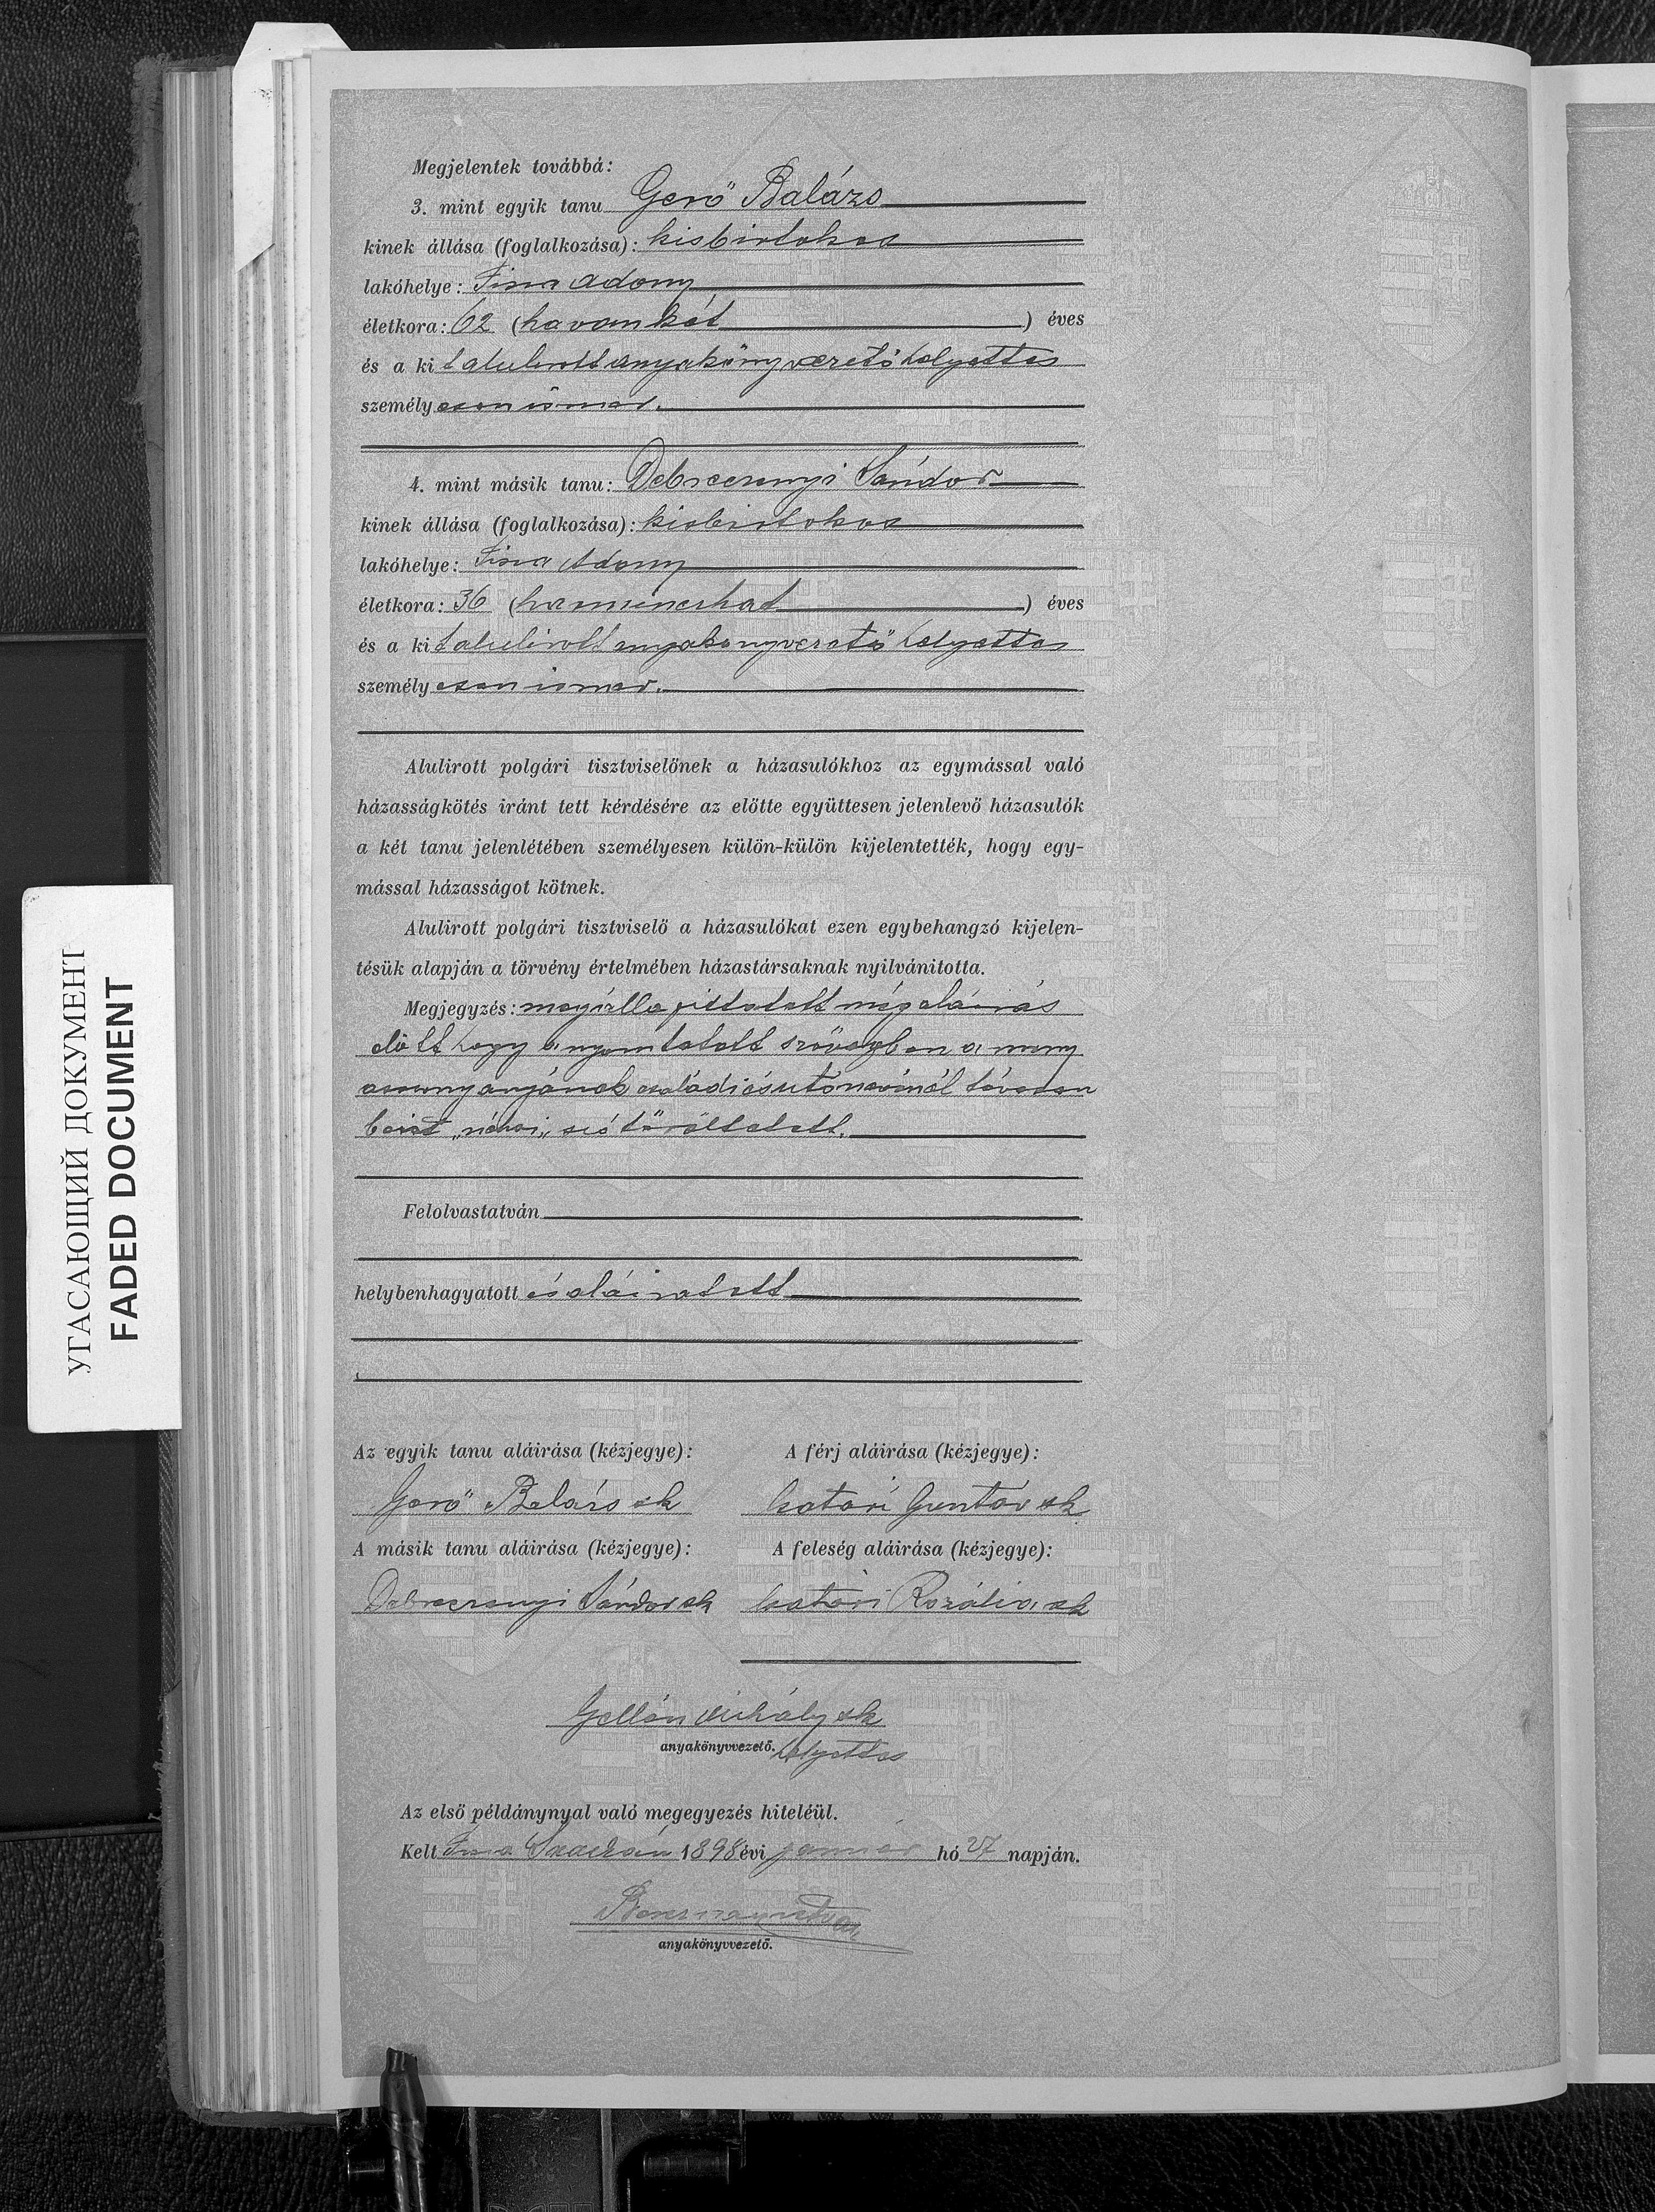 УГАСАЮЩИЙ ДОКУМЕНТ
FADED DOCUMENT
Megjelentek továbbá:
3. mint egyik tanu Gerő Balázs
kinek állása (foglalkozása): kisbirtokos
lakóhelye: Tisza Adony
életkora: 62 (havankét) éves
és a kit alulirott anyakönyvvezető helyettes
személyesen ismer.
4. mint másik tanu: Debreczenyi Sándor
kinek állása (foglalkozása): kisbirtokos
lakóhelye: Tisza Adony
életkora: 36 (harminczhat) éves
és a kit alulirott anyakönyvvezető helyettes
személyesen ismer.
Alulirott polgári tisztviselőnek a házasulókhoz az egymással való
házasságkötés iránt tett kérdésére az előtte együttesen jelenlevő házasulók
a két tanu jelenlétében személyesen külön-külön kijelentették, hogy egy-
mással házasságot kötnek.
Alulirott polgári tisztviselő a házasulókat ezen egybehangzó kijelen-
tésük alapján a törvény értelmében házastársaknak nyilvánitotta.
Megjegyzés: megállapittatott még aláirás
előtt hogy a nyomtatott szövegben a meny
asszony anyjának családi és utónevénél tévesen
beirt „néhai„ szó töröltetett.
Felolvastatván
helybenhagyatott és aláiratott
Az egyik tanu aláirása (kézjegye):
A férj aláirása (kézjegye):
Gerő Balázs sk
Gusztáv sk
A másik tanu aláirása (kézjegye):
A feleség aláirása (kézjegye):
Debreczenyi Sándor sk
Rozália sk
Gellén Mihály sk
anyakönyvvezető. helyettes
Az első példánynyal való megegyezés hiteléül.
Kelt Tisza 1898 évi január hó 27 napján.
anyakönyvvezető.